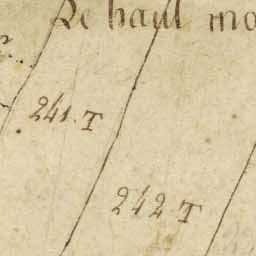 Le haul mo
241. T
242 T